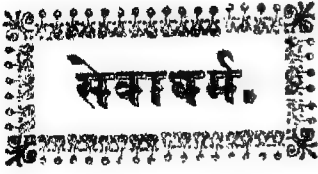 सेवाधर्म.